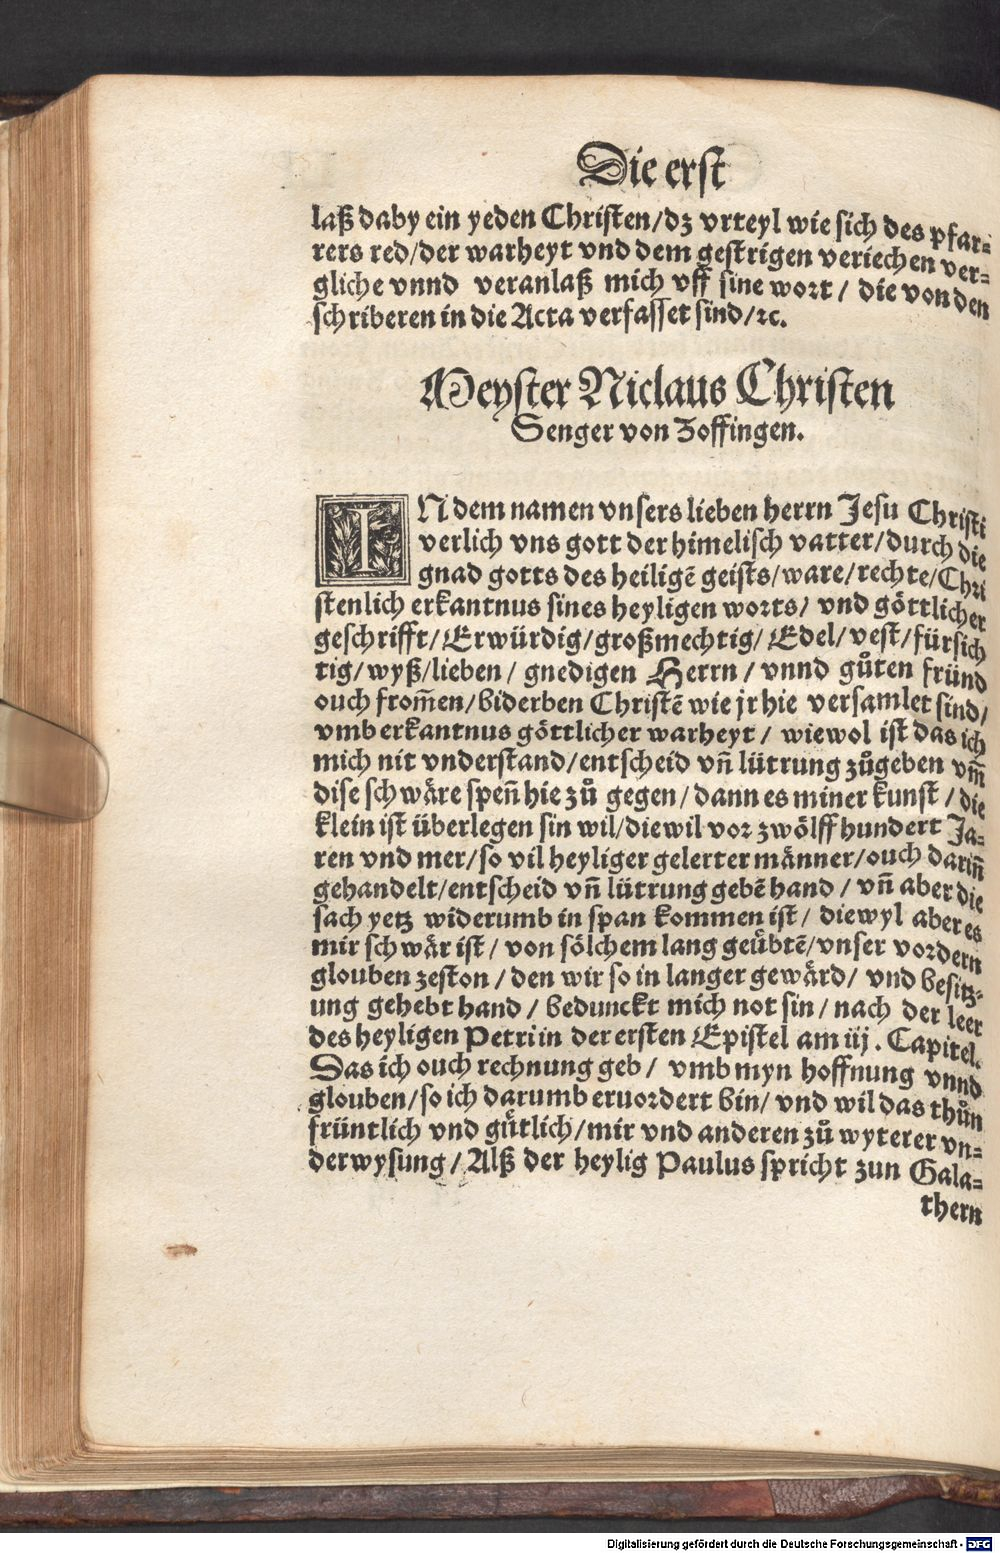 Die erst
laß daby ein yeden Christen/dz vrteyl wie sich des pfar⸗
rers red/der warheyt vnd dem gestrigen veriechen ver⸗
gliche vnnd veranlaß mich vff sine wort/ die von den
schriberen in die Acta verfasset sind/ꝛc.
Meyster Niclaus Christen
Senger von Zoffingen.
IN dem namen vnsers lieben herrn Jesu Christi
verlich vns gott der himelisch vatter/durch die
gnad gotts des heiligẽ geists/ware/rechte/Chri
stenlich erkantnus sines heyligen worts/ vnd göttlicher
geschrifft/Erwürdig/großmechtig/ Edel/vest/fürsich
tig/wyß/lieben/ gnedigen Herrn/ vnnd gůten fründ
ouch from̃en/biderben Christẽ wie jr hie versamlet sind/
vmb erkantnus göttlicher warheyt/ wiewol ist das ich
mich nit vnderstand/entscheid vñ lütrung zůgeben vm̃
dise schwäre spen̄ hie zů gegen/dann es miner kunst/die
klein ist überlegen sin wil/diewil vor zwölff hundert Ja⸗
ren vnd mer/so vil heyliger gelerter männer/ouch darin̄
gehandelt/entscheid vñ lütrung gebẽ hand/ vñ aber die
sach yetz widerumb in span kommen ist/ diewyl aber es
mir schwär ist/ von sölchem lang geübtẽ/vnser vordern
glouben zeston/den wir so in langer gewärd/ vnd besitz⸗
ung gehebt hand/ bedunckt mich not sin/nach der leer
des heyligen Petri in der ersten Epistel am iij. Capitel.
Das ich ouch rechnung geb/ vmb myn hoffnung vnnd
glouben/so ich darumb eruordert bin/ vnd wil das thůn
früntlich vnd gütlich/mir vnd anderen zů wyterer vn⸗
derwysung/Alß der heylig Paulus spricht zun Gala⸗
thern
Digitalisierung gefördert durch die Deutsche Forschungsgemeinschaft - DFG